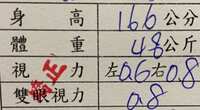 身高 166公分
體重 48公斤
視力 矯正 左0.6右0.8
雙眼視力 0.8